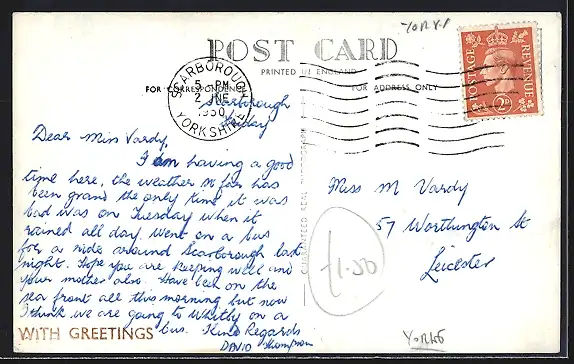 YORK
POST CARD
PRINTED IN ENGLAND
FOR CORRESPONDENCE
FOR ADDRESS ONLY
SCARBOROUGH
5 - PM
2 JNE
1950
YORKSHIRE
POSTAGE
REVENUE
2D
Scarborough
Friday
Dear Miss Vardy,
I am having a good
time here, the weather so far has
been grand the only time it was
bad was on Tuesday when it
rained all day. Went on a bus
for a ride around Scarborough last
night. Hope you are keeping well and
your mother also. Have been on the
sea front all this morning but now
I think we are going to Whitby on a
bus. Kind Regards
DAVID Thompson
WITH GREETINGS
Miss M Vardy
57 Worthington St
Leicester
£1.50